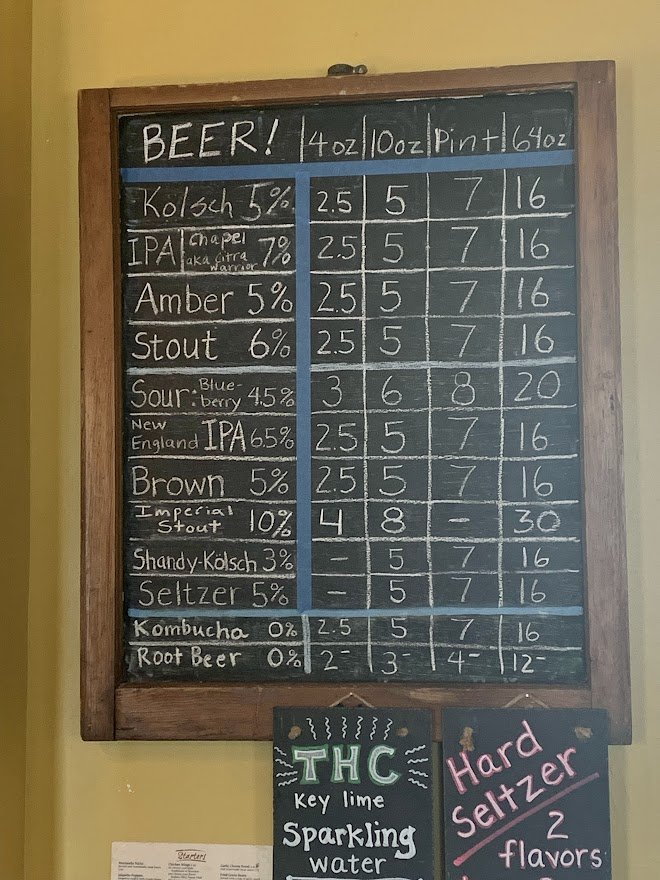 BEER! 4oz 10oz Pint 64oz
Kolsch 5% 2.5 5 7 16
IPA Chapel aka Citra Warrior 7% 2.5 5 7 16
Amber 5% 2.5 5 7 16
Stout 6% 2.5 5 7 16
Sour: Blue-berry 4.5% 3 6 8 20
New England IPA 6.5% 2.5 5 7 16
Brown 5% 2.5 5 7 16
Imperial Stout 10% 4 8 - 30
Shandy-Kölsch 3% - 5 7 16
Seltzer 5% - 5 7 16
Kombucha 0% 2.5 5 7 16
Root Beer 0% 2- 3- 4- 12-
THC
Key lime
Sparkling
water
Hard
Seltzer
2
flavors
Starters